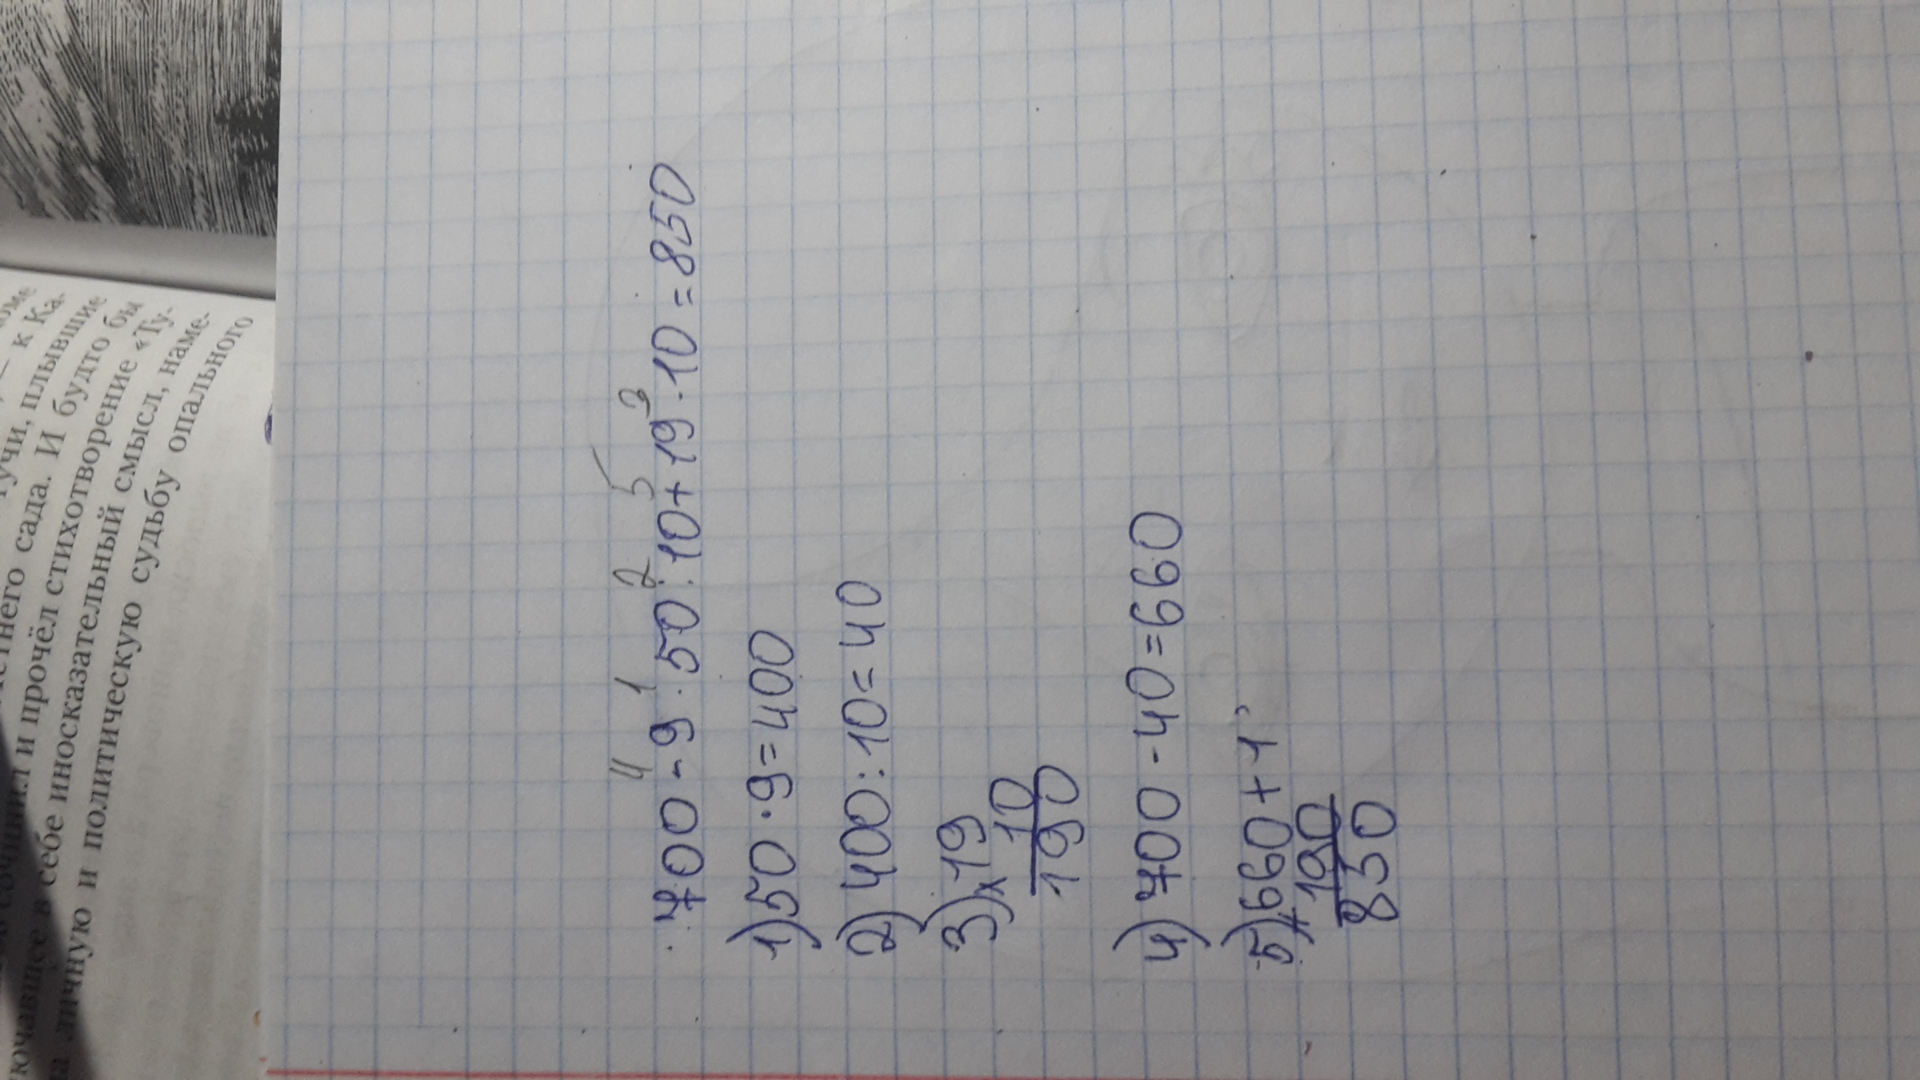 оме
тучи, — к Ка-
тучи, плывшие
етнего сада. И будто бы
и прочёл стихотворение «Ту-
себе иносказательный смысл, наме-
личную и политическую судьбу опального
4 1 2 5 3
700-9·50:10+19·10=850
1)50·9=400
2)400:10=40
3)x19
10
190
4)700-40=660
5)660+1
+190
850